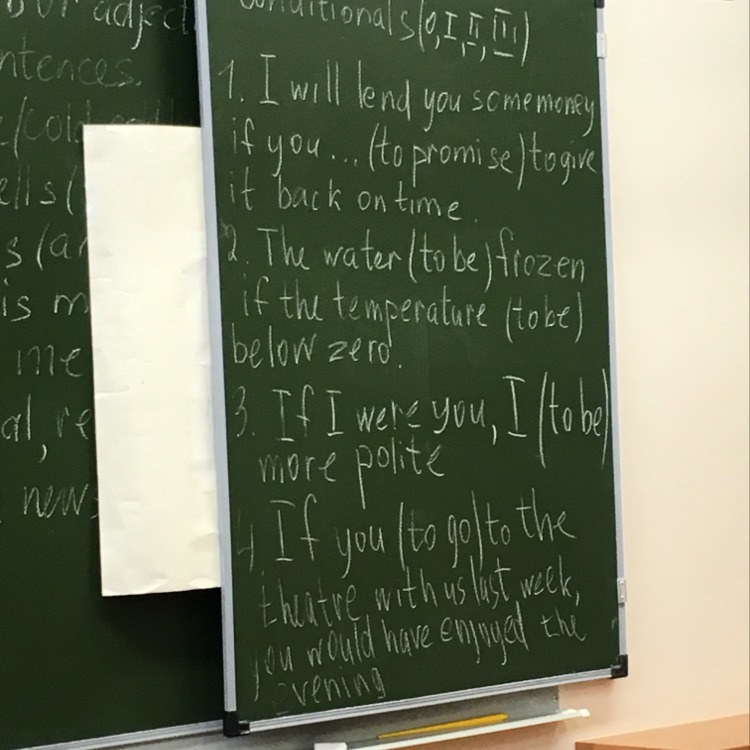 adject
ntences.
ells (
s (a
is m
me
al, re
news
conditionals (0, I, II, III)
1. I will lend you some money
if you... (to promise) to give
it back on time.
2. The water (to be) frozen
if the temperature (to be)
below zero.
3. If I were you, I (to be)
more polite
4 If you (to go) to the
theatre with us last week,
you would have enjoyed the
evening